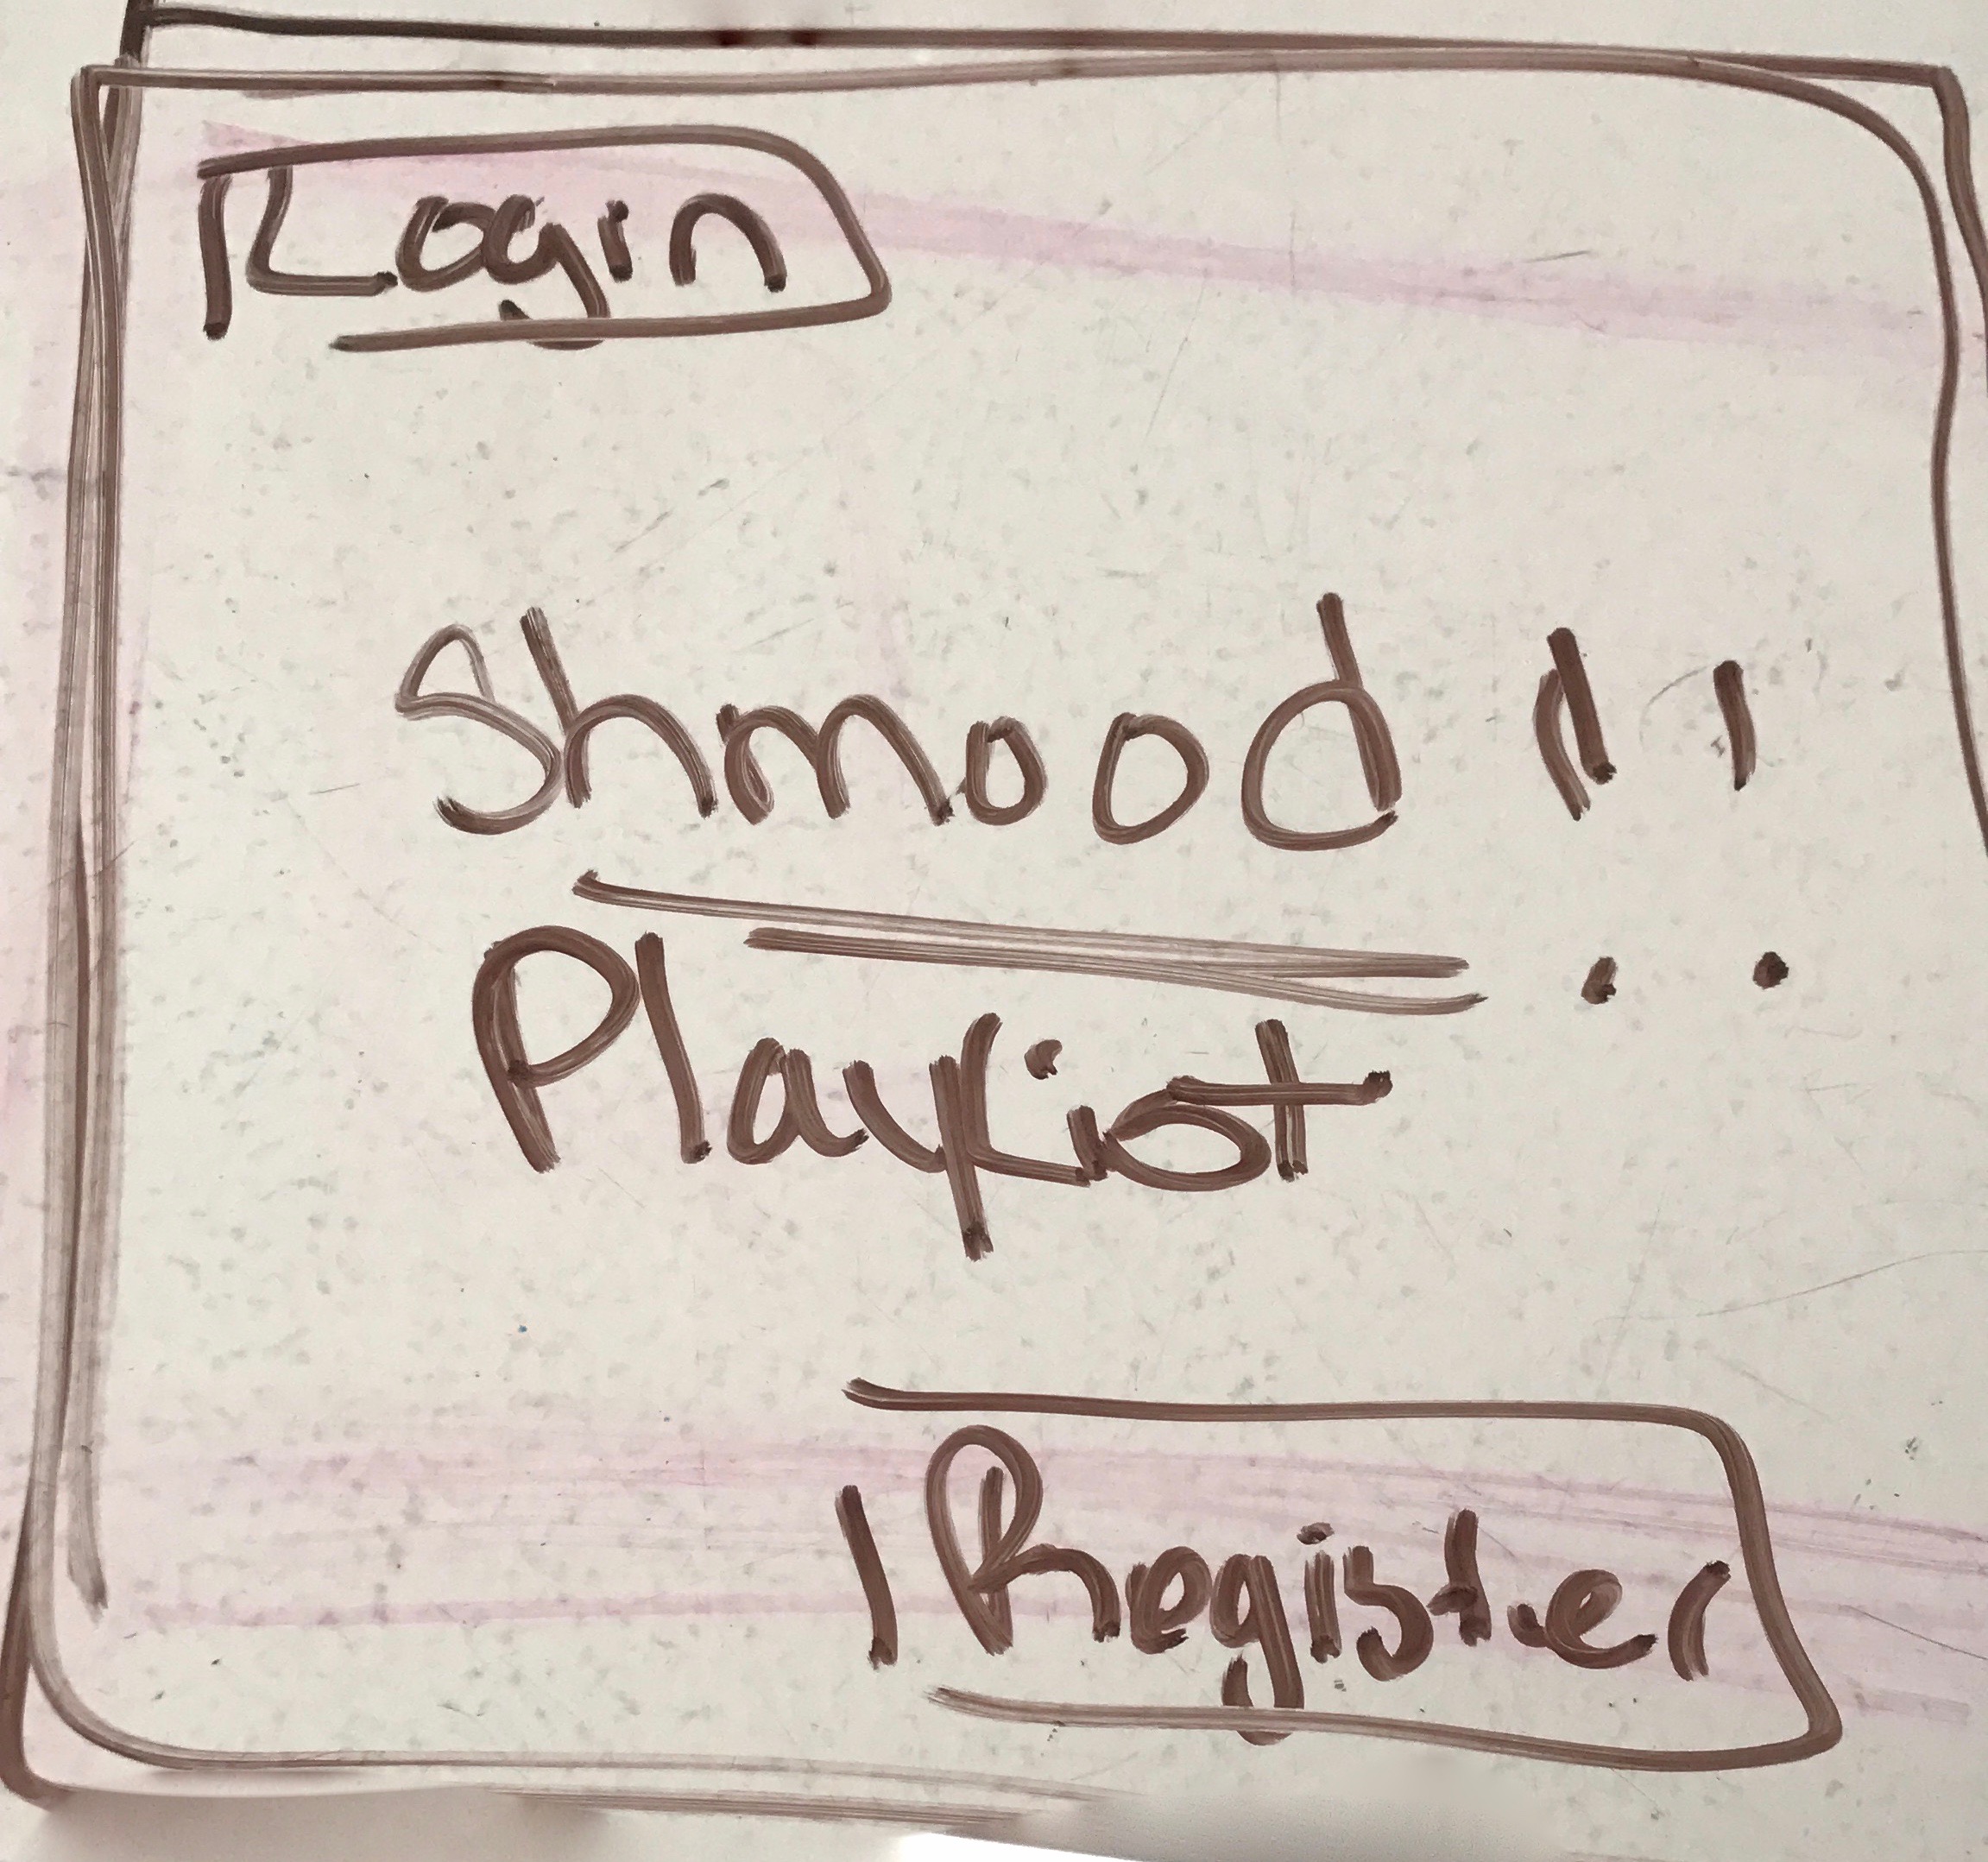 Login
Shmood !!
Playlist
Register